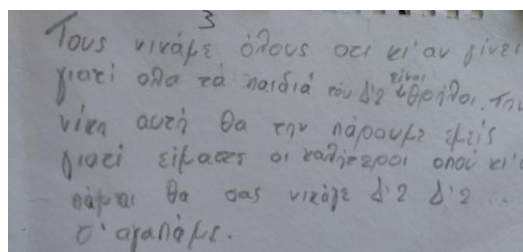 3
Τους νικάμε όλους οτι κι'αν γίνει
γιατί ολα τά παιδιά του δ'2 είναι θρήλοι. Την
νίκη αυτή θα την πάρουμε εμείς
γιατί είμαστε οι καλήτεροι οπού κι'α
πάμαι θα σας νικάμε δ'2 δ'2 ...
σ'αγαπάμε.